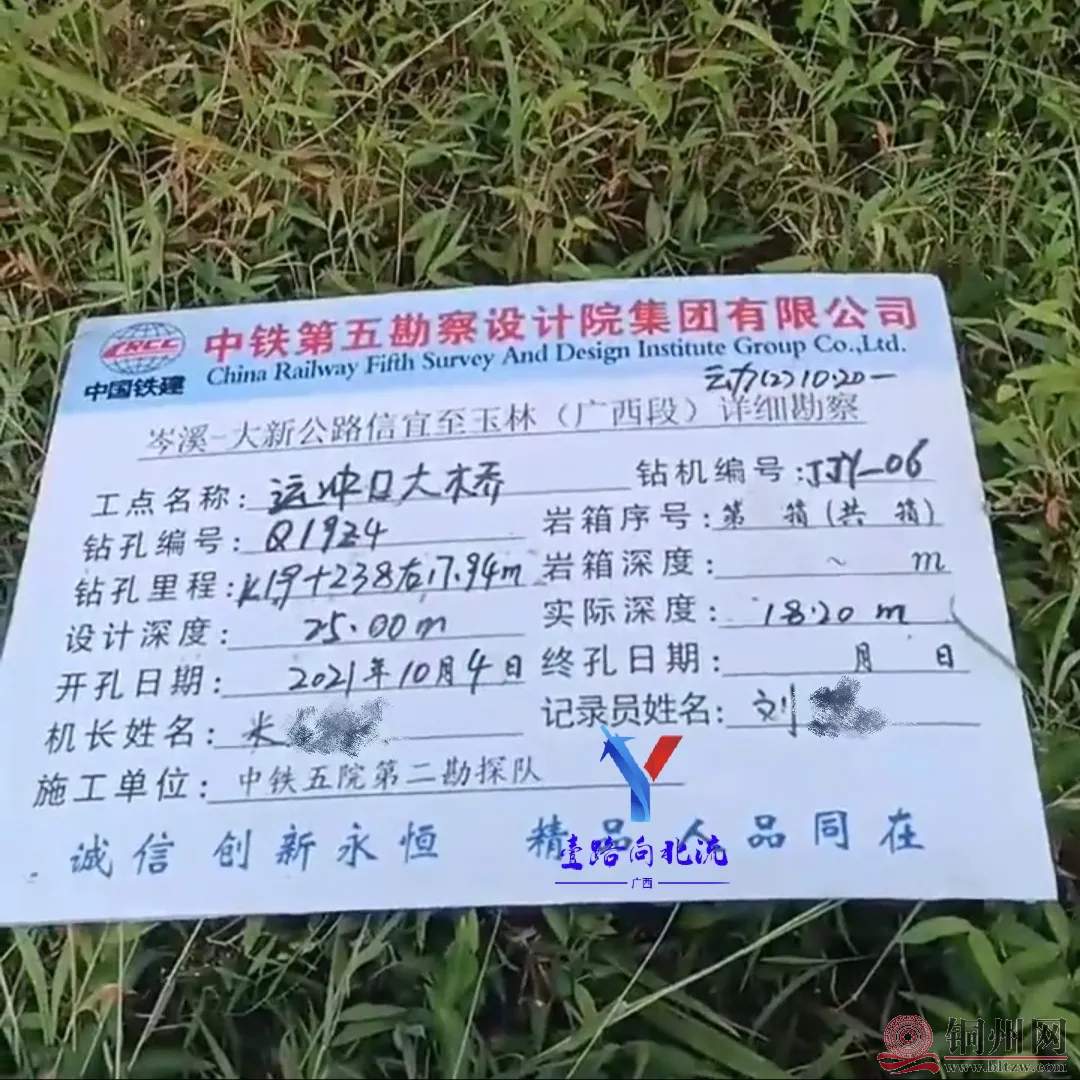 CRCC
中国铁建
中铁第五勘察设计院集团有限公司
China Railway Fifth Survey And Design Institute Group Co.,Ltd.
动力(2)10.20一
岑溪-大新公路信宜至玉林（广西段）详细勘察
工点名称：运冲口大桥 钻机编号：JJY-06
钻孔编号：Q19Z4 岩箱序号：第 箱(共 箱)
钻孔里程：K19+238右17.94m 岩箱深度： ~ m
设计深度：25.00m 实际深度：18.20 m
开孔日期：2021年10月4日 终孔日期： 月 日
机长姓名：米 记录员姓名：刘
施工单位：中铁五院第二勘探队
诚信创新永恒 精品人品同在
壹路向北流
广西
铜州网
www.bltzw.com